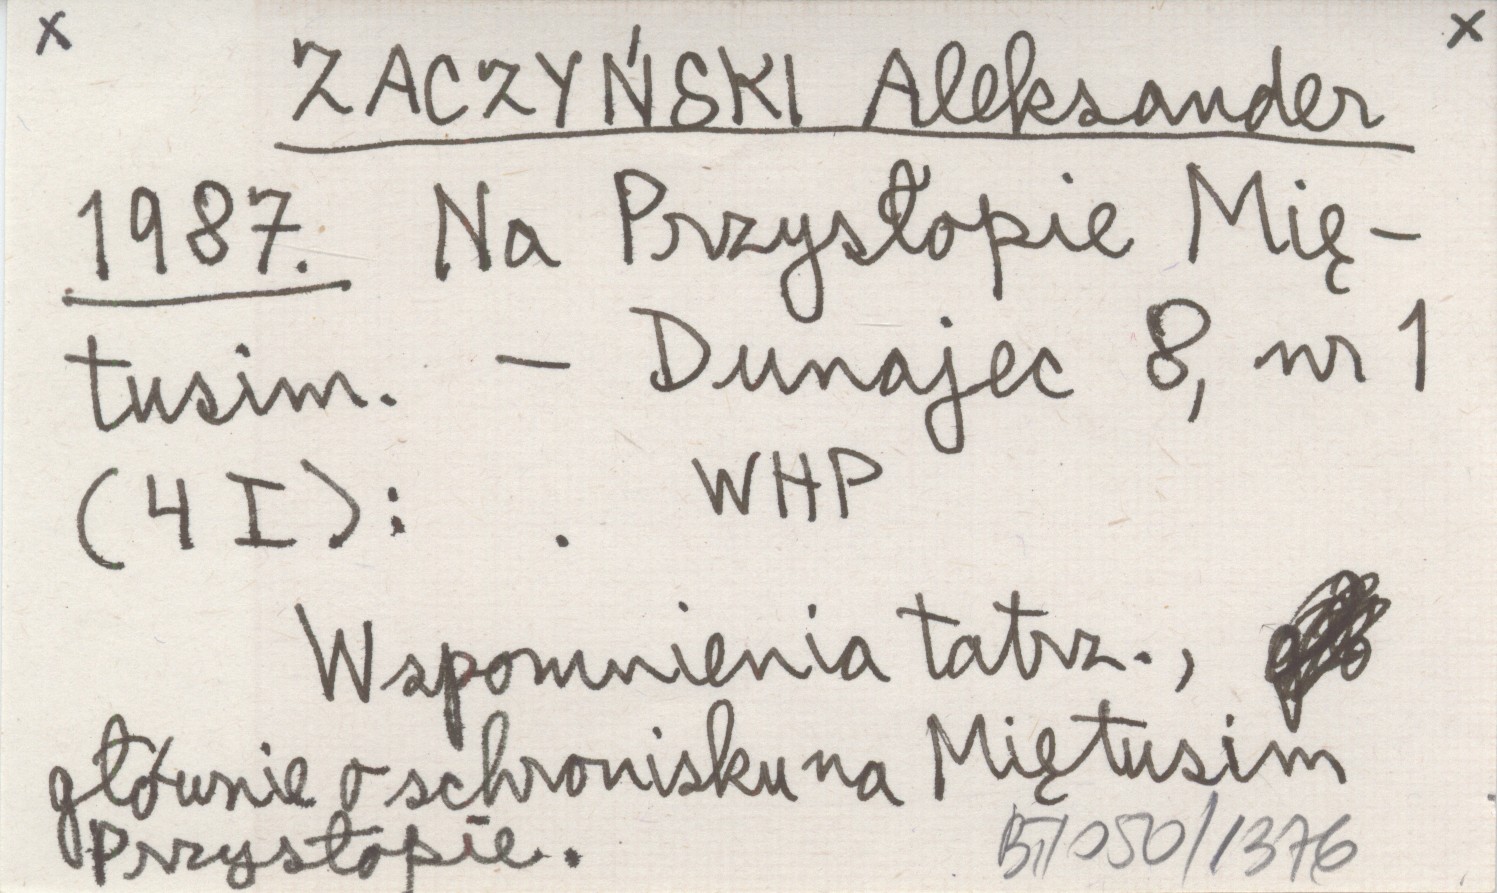 x x
ZACZYŃSKI Aleksander
1987. Na Przysłopie Mię-
tusim. – Dunajec 8, nr 1
(4 I): . WHP
Wspomnienia tatrz.,
głównie o schronisku na Miętusim
Przysłopie.
BT/050/1376